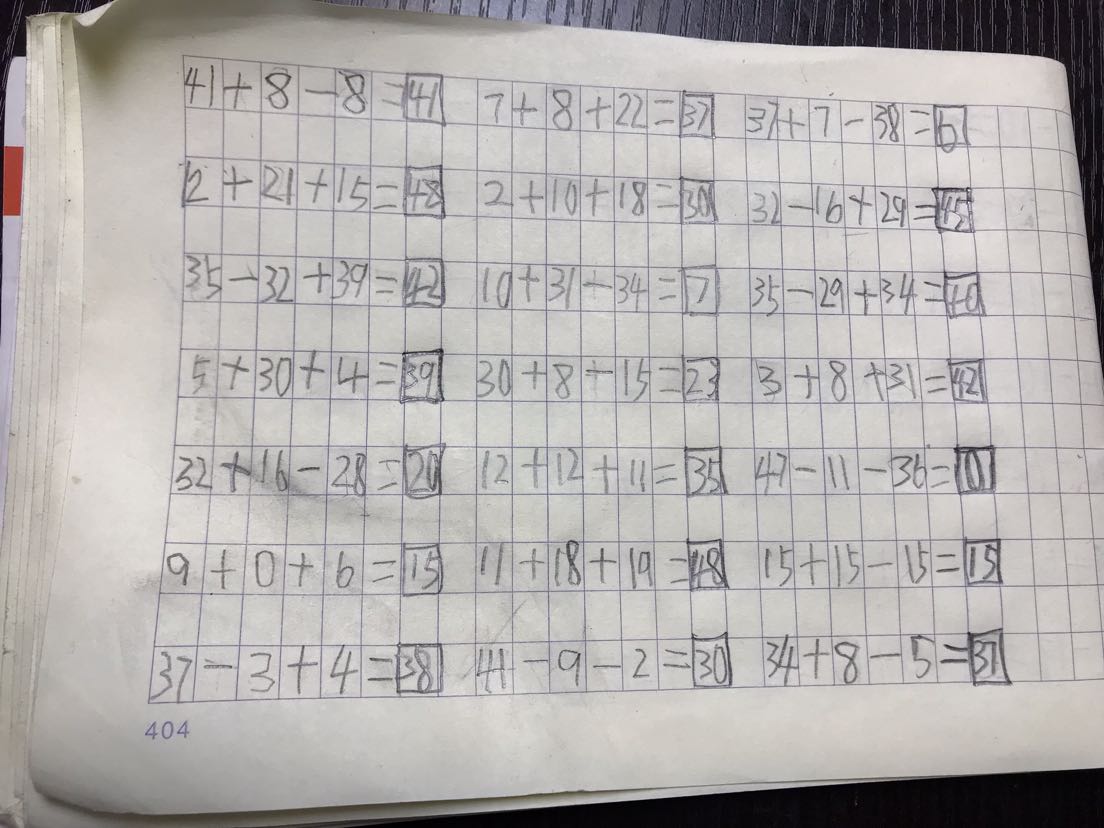 41+8-8=41 7+8+22=37 37+7-38=6
12+21+15=48 2+10+18=30 32-16+29=45
35-32+39=42 10+31-34=7 35-29+34=40
5+30+4=39 30+8-15=23 3+8+31=42
32+16-28=20 12+12+11=35 47-11-36=0
9+0+6=15 11+18+19=48 15+15-15=15
37-3+4=38 41-9-2=30 34+8-5=37
404